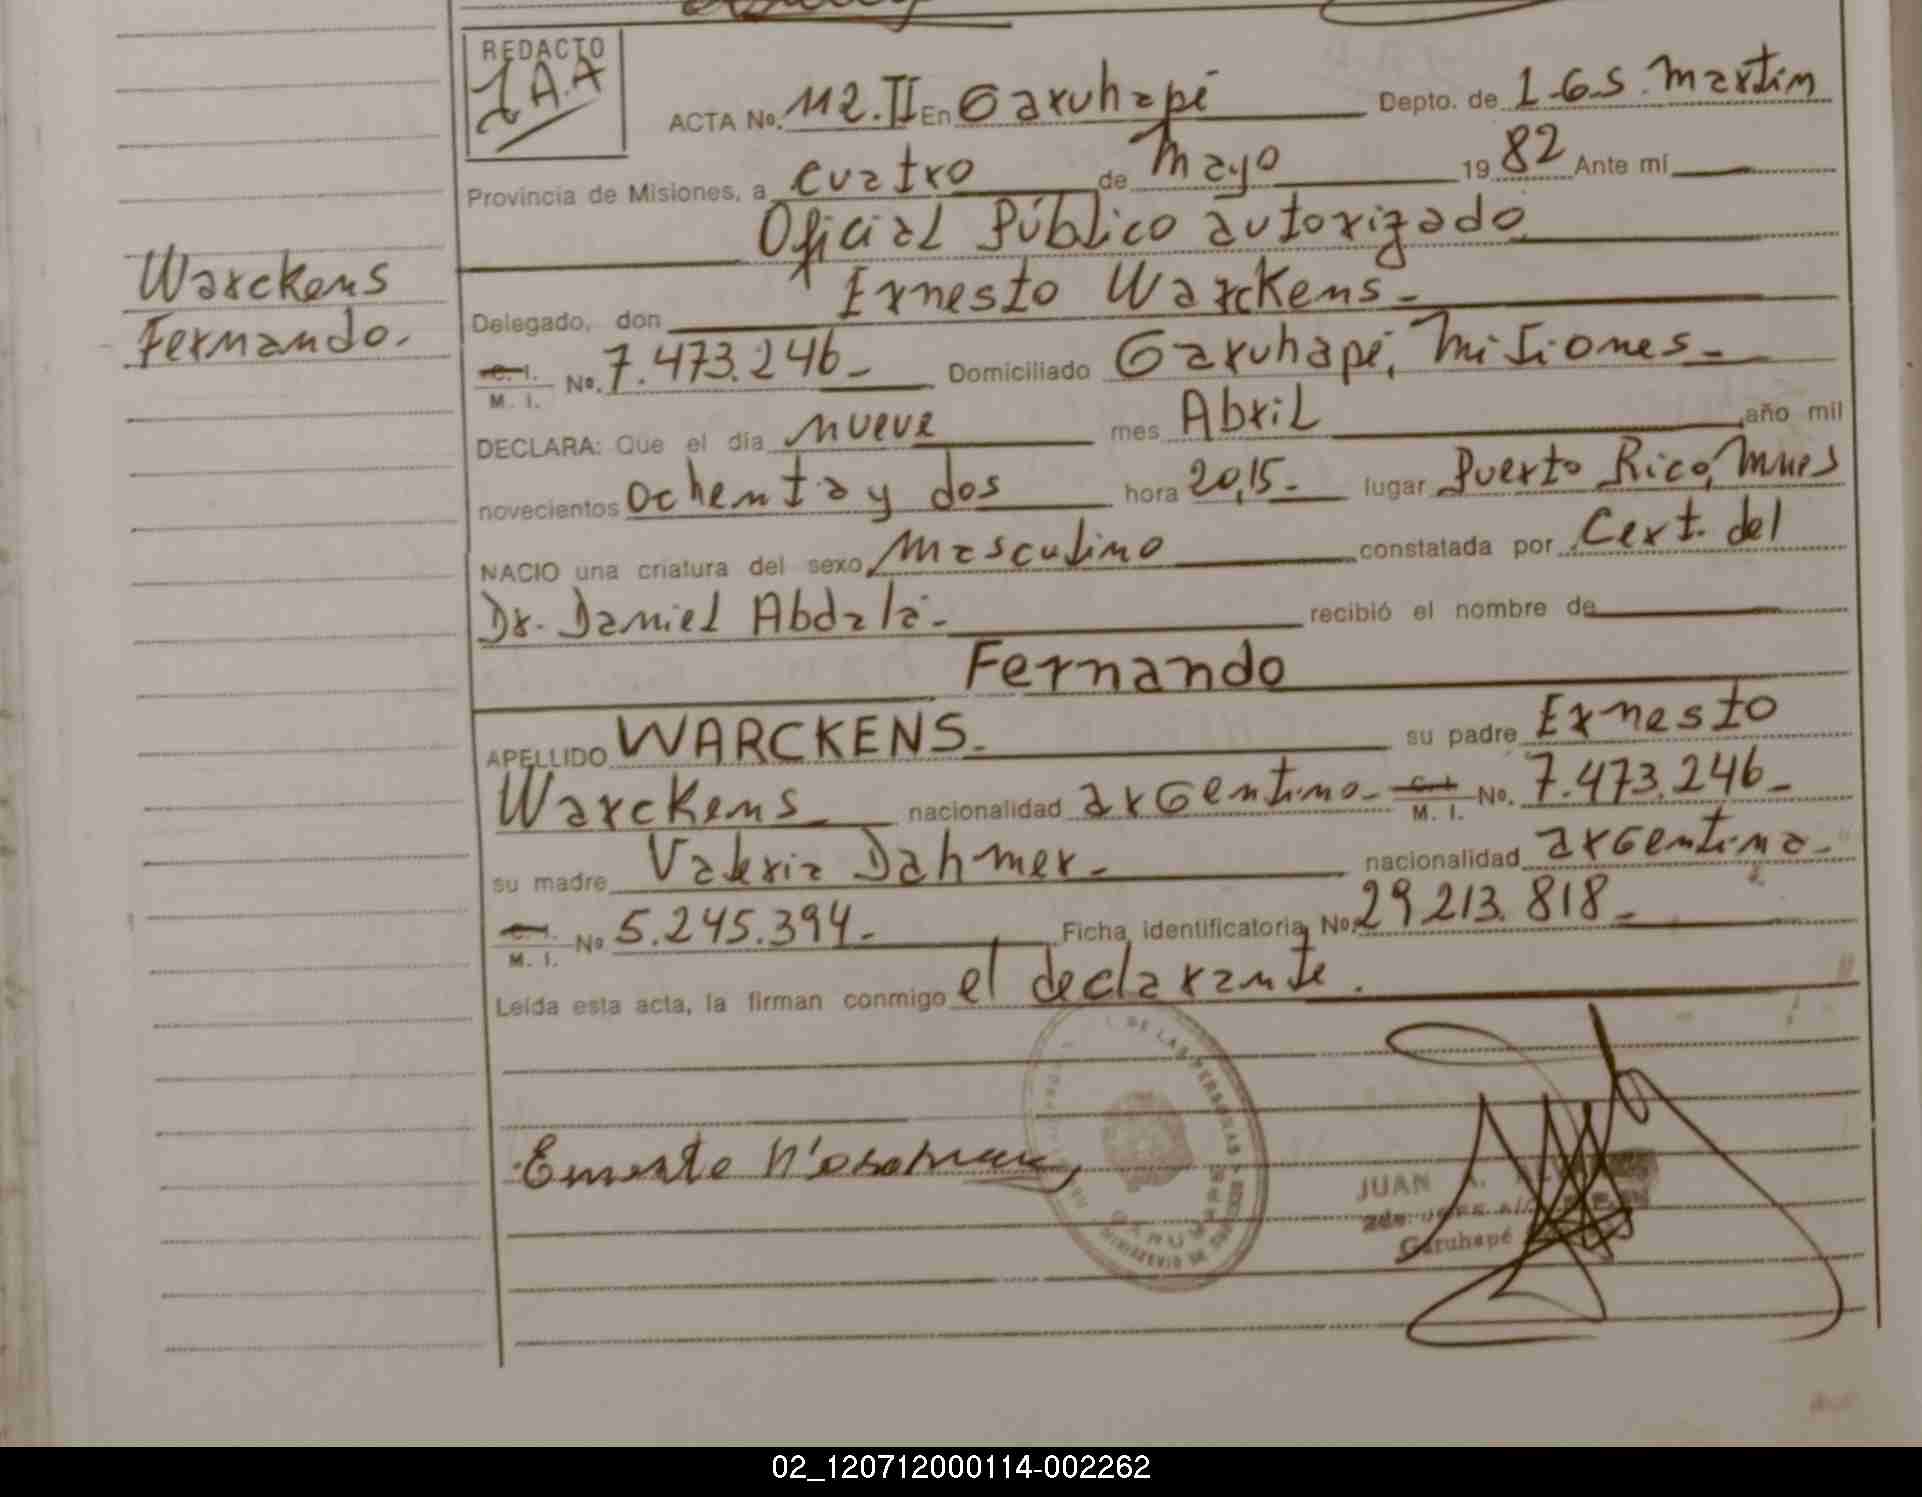 REDACTO
J.A.A
ACTA No. 112.II En Garuhapé Depto. de L.G.S. Martin
Provincia de Misiones, a cuatro de Mayo 1982 Ante mí
Oficial Público autorizado
Warckens
Fernando.
Delegado, don Ernesto Warckens.-
C. I. M. I. No. 7.473.246- Domiciliado Garuhapé, Misiones-
DECLARA: Que el día nueve mes Abril año mil
novecientos ochenta y dos hora 20,15- lugar Puerto Rico, Mnes
NACIO una criatura del sexo Masculino constatada por Cert. del
Dr. Daniel Abdala- recibió el nombre de
Fernando
APELLIDO WARCKENS- su padre Ernesto
Warckens nacionalidad argentino- C. I. M. I. No. 7.473.246-
su madre Valeria Dahmer- nacionalidad argentina-
C. I. M. I. No 5.245.394- Ficha identificatoria No. 29.213.818-
Leída esta acta, la firman conmigo el declarante.
DE LAS PERSONAS
GARUHAPE
MINISTERIO DE
Ernesto
JUAN A.
Garuhapé
02_120712000114-002262